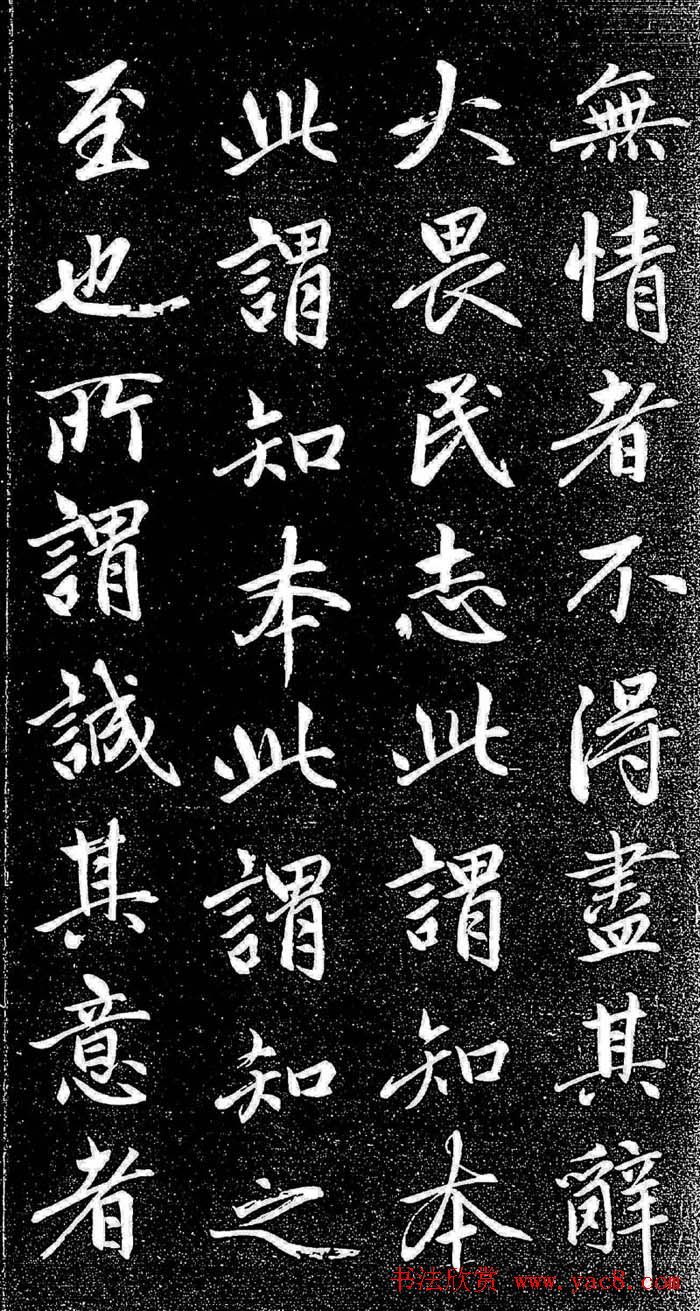 無情者不得盡其辭
大畏民志此謂知本
此謂知本此謂知之
至也所謂誠其意者
书法欣赏 www.yac8.com